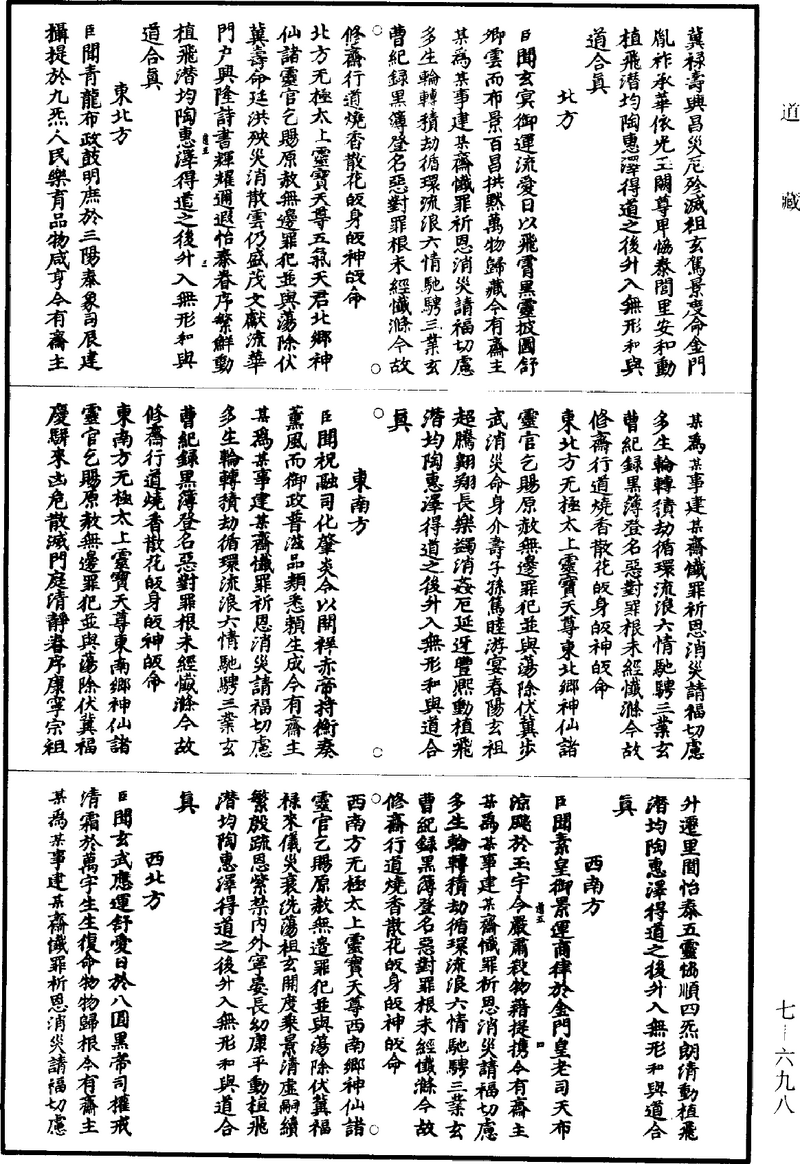 道藏
冀祿壽興昌災厄殄滅祖玄駕景慶命金門
胤祚承華依光玉闕尊卑恊泰閭里安和動
植飛潛均陶惠澤得道之後升入無形和與
道合真
北方
臣聞玄冥御運流愛日以飛霄黑靈披圖舒
卿雲而布景百昌拱默萬物歸藏今有齋主
某為某事建某齋懺罪祈恩消災請福切慮
多生輪轉積劫循環流浪六情馳騁三業玄
曹紀錄黑簿登名惡對罪根未經懺滌今故
修齋行道燒香散花皈身皈神皈命
北方无極太上靈寶天尊五氣天君北鄉神
仙諸靈官乞賜原赦無邊罪犯並與蕩除伏
冀壽命延洪殃災消散雲仍盛茂文獻流華
門戶興隆詩書輝耀邇遐怡泰眷序繁鮮動
植飛潛均陶惠澤得道之後升入無形和與
道合真
東北方
臣聞青龍布政鼓明庶於三陽泰象司辰建
攝提於九炁人民樂育品物咸亨今有齋主
某為某事建某齋懺罪祈恩消災請福切慮
多生輪轉積劫循環流浪六情馳騁三業玄
曹紀錄黑簿登名惡對罪根未經懺滌今故
修齋行道燒香散花皈身皈神皈命
東北方无極太上靈寶天尊東北鄉神仙諸
靈官乞賜原赦無邊罪犯並與蕩除伏冀步
武消災命身介壽子孫篤睦游宴春陽玄祖
起騰翺翔長樂蠲消姦厄延迓豐熙動植飛
潛均陶惠澤得道之後升入無形和與道合
真
東南方
臣聞祝融司化肇炎令以開祥赤帝持衡奏
薰風而御政普滋品類悉賴生成今有齋主
某為某事建某齋懺罪祈恩消災請福切慮
多生輪轉積劫循環流浪六情馳騁三業玄
曹紀錄黑簿登名惡對罪根未經懺滌今故
修齋行道燒香散花皈身皈神皈命
東南方无極太上靈寶天尊東南鄉神仙諸
靈官乞賜原赦無邊罪犯並與蕩除伏冀福
慶駢來凶危散滅門庭清靜眷序康寧宗祖
升遷里閭怡泰五靈恊順四炁朗清動植飛
潛均陶惠澤得道之後升入無形和與道合
真
西南方
臣聞素皇御景運商律於金門皇老司天布
涼飈於玉宇令嚴肅殺物藉提携今有齋主
某為某事建某齋懺罪祈恩消災請福切慮
多生輪轉積劫循環流浪六情馳騁三業玄
曹紀錄黑簿登名惡對罪根未經懺滌今故
修齋行道燒香散花皈身皈神皈命
西南方无極太上靈寶天尊西南鄉神仙諸
靈官乞賜原赦無邊罪犯並與蕩除伏冀福
祿來儀災衰洗蕩祖玄開度乘景清虛嗣續
繁殷疏恩紫禁內外寧晏長幼康平動植飛
潛均陶惠澤得道之後升入無形和與道合
真
西北方
臣聞玄武應運舒愛日於八圓黑帝司權戒
清霜於萬宇生生復命物物歸根今有齋主
某為某事建某齋懺罪祈恩消災請福切慮
七—六九八